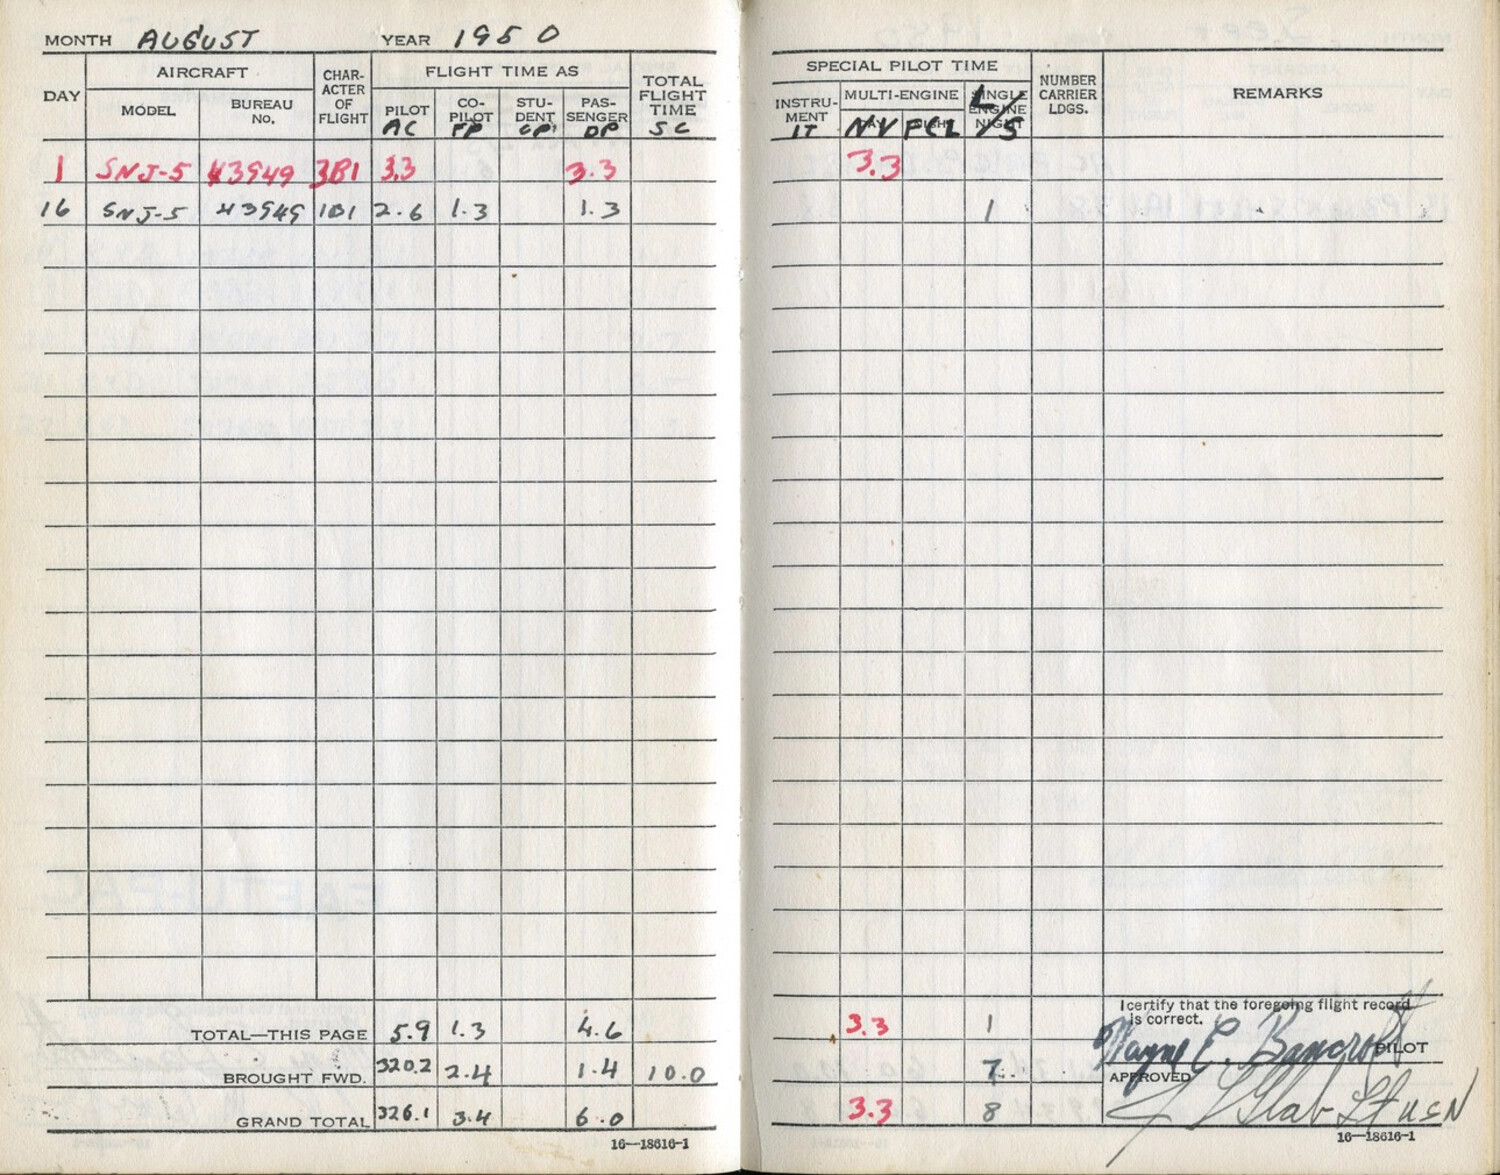 MONTH AUGUST YEAR 1950
DAY AIRCRAFT CHARACTER OF FLIGHT FLIGHT TIME AS TOTAL FLIGHT TIME
MODEL BUREAU No. PILOT CO-PILOT STUDENT PASSENGER
AC FP CP DP SC
1 SNJ-5 43949 3B1 3.3 3.3
16 SNJ-5 43949 1B1 2.6 1.3 1.3
TOTAL—THIS PAGE 5.9 1.3 4.6
BROUGHT FWD. 320.2 2.4 1.4 10.0
GRAND TOTAL 326.1 3.4 6.0
16—18616-1
SPECIAL PILOT TIME NUMBER CARRIER LDGS. REMARKS
INSTRUMENT MULTI-ENGINE SINGLE ENGINE NIGHT
IT NV FCL L/S
3.3
1
I certify that the foregoing flight record
is correct.
3.3 1
Wayne E. Bancroft PILOT
7
APPROVED
3.3 8
Lt USN
16—18616-1